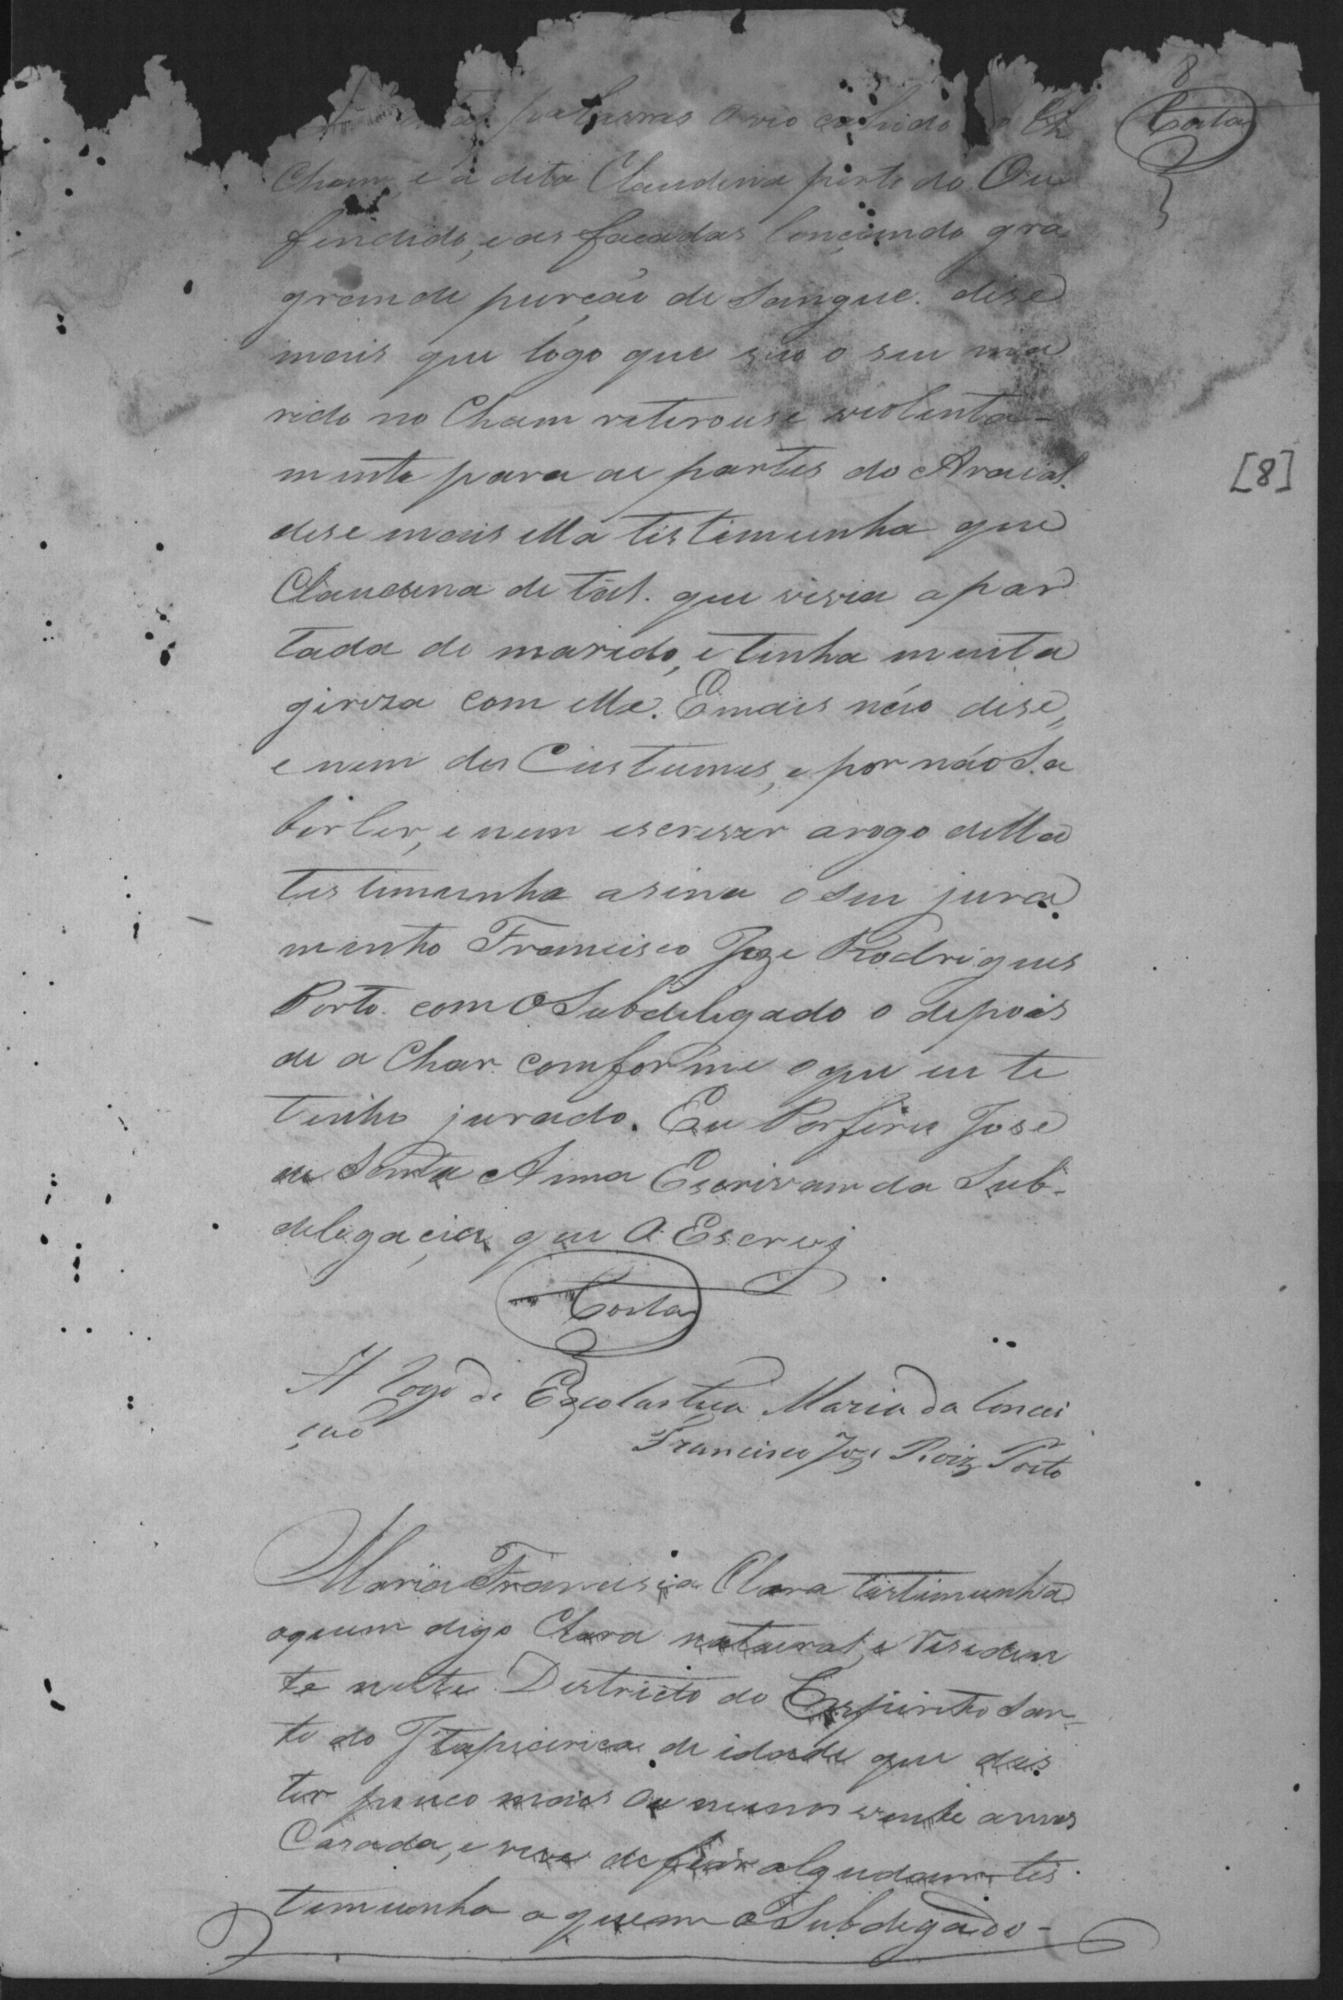 8
Costa
palavras o vio cahido
Cham, e a dita Claudina perto do Ou
fendido, e as facadas lonçando gra
grande purção de Sangue. dise
mais que lógo que vio o seu ma
rido no Cham retirouse violenta-
mente para as partes do Araial.
dise mais ella tistimunha que
Claudina de tal. que vivia apar
tada do marido, e tinha muita
giriza com elle. E mais não dise,
e nem dos Custumes, e por não Sa
ber ler, e nem escrever arogo della
tistimunha asina o seu jura
mento Francisco Joze Rodrigues
Porto. com O Subdelegado o depois
de a Char comforme o que eu te
tenho jurado. Eu Porfirio Jose
de Santa Anna Escrivam da Sub-
delegacia que O Escrevj
Costa
A Rogo de Escolastica Maria da Concei
ção
Francisco Joze Roiz Porto
[8]
Maria Francisca Clara tistimunha
aquem digo Clara natural, e residen
te neste Districto do Espirito San-
to do Itapicirica de idade que dis
ter pouco mais ou menos vente annos
Casada, e vive de fiar algudam tis
timunha a quem o Subdegado-